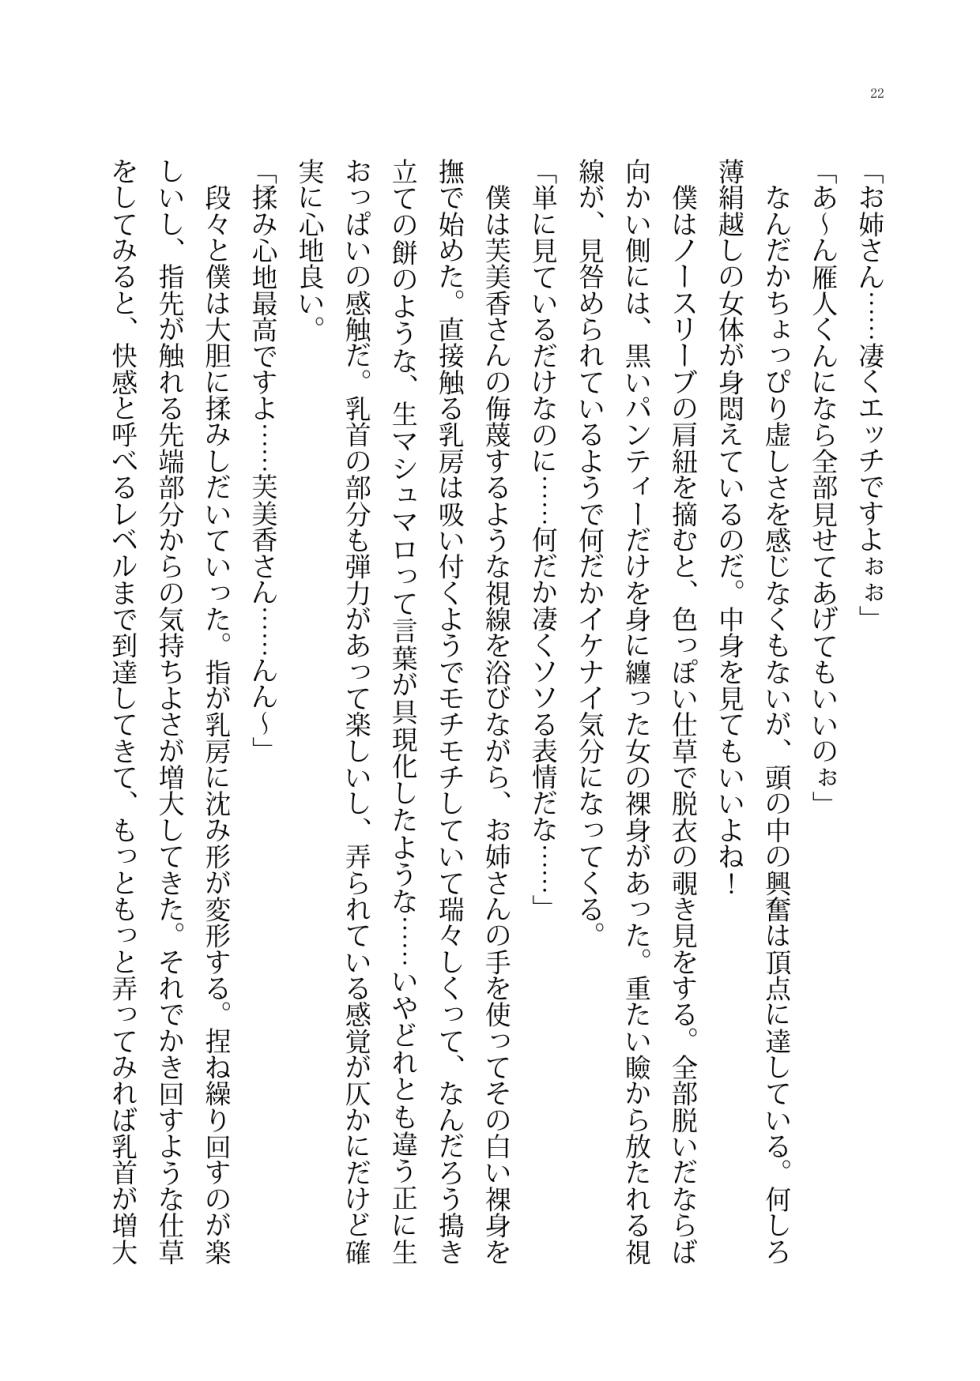 22
「お姉さん……凄くエッチですよぉぉ」
「あ～ん雁人くんになら全部見せてあげてもいいのぉ」
なんだかちょっぴり虚しさを感じなくもないが、頭の中の興奮は頂点に達している。何しろ
薄絹越しの女体が身悶えているのだ。中身を見てもいいよね！
僕はノースリーブの肩紐を摘むと、色っぽい仕草で脱衣の覗き見をする。全部脱いだならば
向かい側には、黒いパンティーだけを身に纏った女の裸身があった。重たい瞼から放たれる視
線が、見咎められているようで何だかイケナイ気分になってくる。
「単に見ているだけなのに……何だか凄くソソる表情だな……」
僕は芙美香さんの侮蔑するような視線を浴びながら、お姉さんの手を使ってその白い裸身を
撫で始めた。直接触る乳房は吸い付くようでモチモチしていて瑞々しくって、なんだろう搗き
立ての餅のような、生マシュマロって言葉が具現化したような……いやどれとも違う正に生
おっぱいの感触だ。乳首の部分も弾力があって楽しいし、弄られている感覚が仄かにだけど確
実に心地良い。
「揉み心地最高ですよ……芙美香さん……んん～」
段々と僕は大胆に揉みしだいていった。指が乳房に沈み形が変形する。捏ね繰り回すのが楽
しいし、指先が触れる先端部分からの気持ちよさが増大してきた。それでかき回すような仕草
をしてみると、快感と呼べるレベルまで到達してきて、もっともっと弄ってみれば乳首が増大